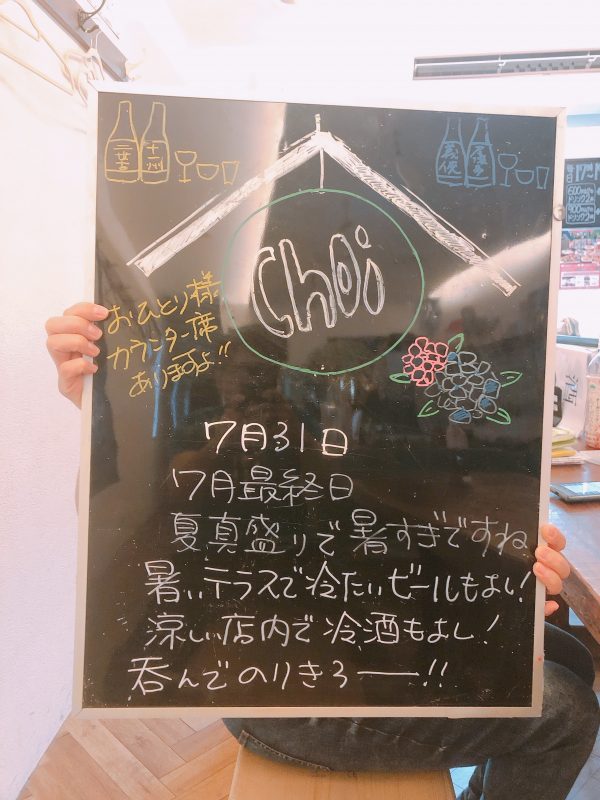 十一州
choi
おひとり様
カウンター席
ありますよ!!
7月31日
7月最終日
夏真盛りで暑すぎですね
暑いテラスで冷たいビールもよし!
涼しい店内で冷酒もよし!
呑んでのりきろー!!